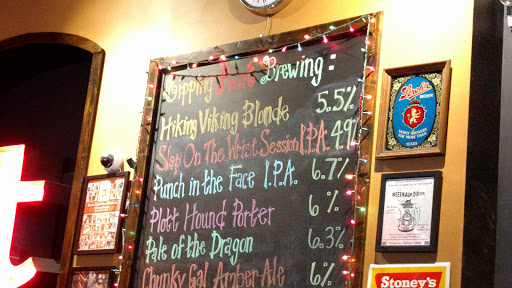 Brewing:
Hiking Viking Blonde 5.5%
Slap On The Wrist Session I.P.A. 4.9%
Punch in the Face I.P.A. 6.7%
Plott Hound Porter 6%
Pale of the Dragon 6.3%
Chunky Gal Amber Ale 6%
YEARS
Stoney's
t